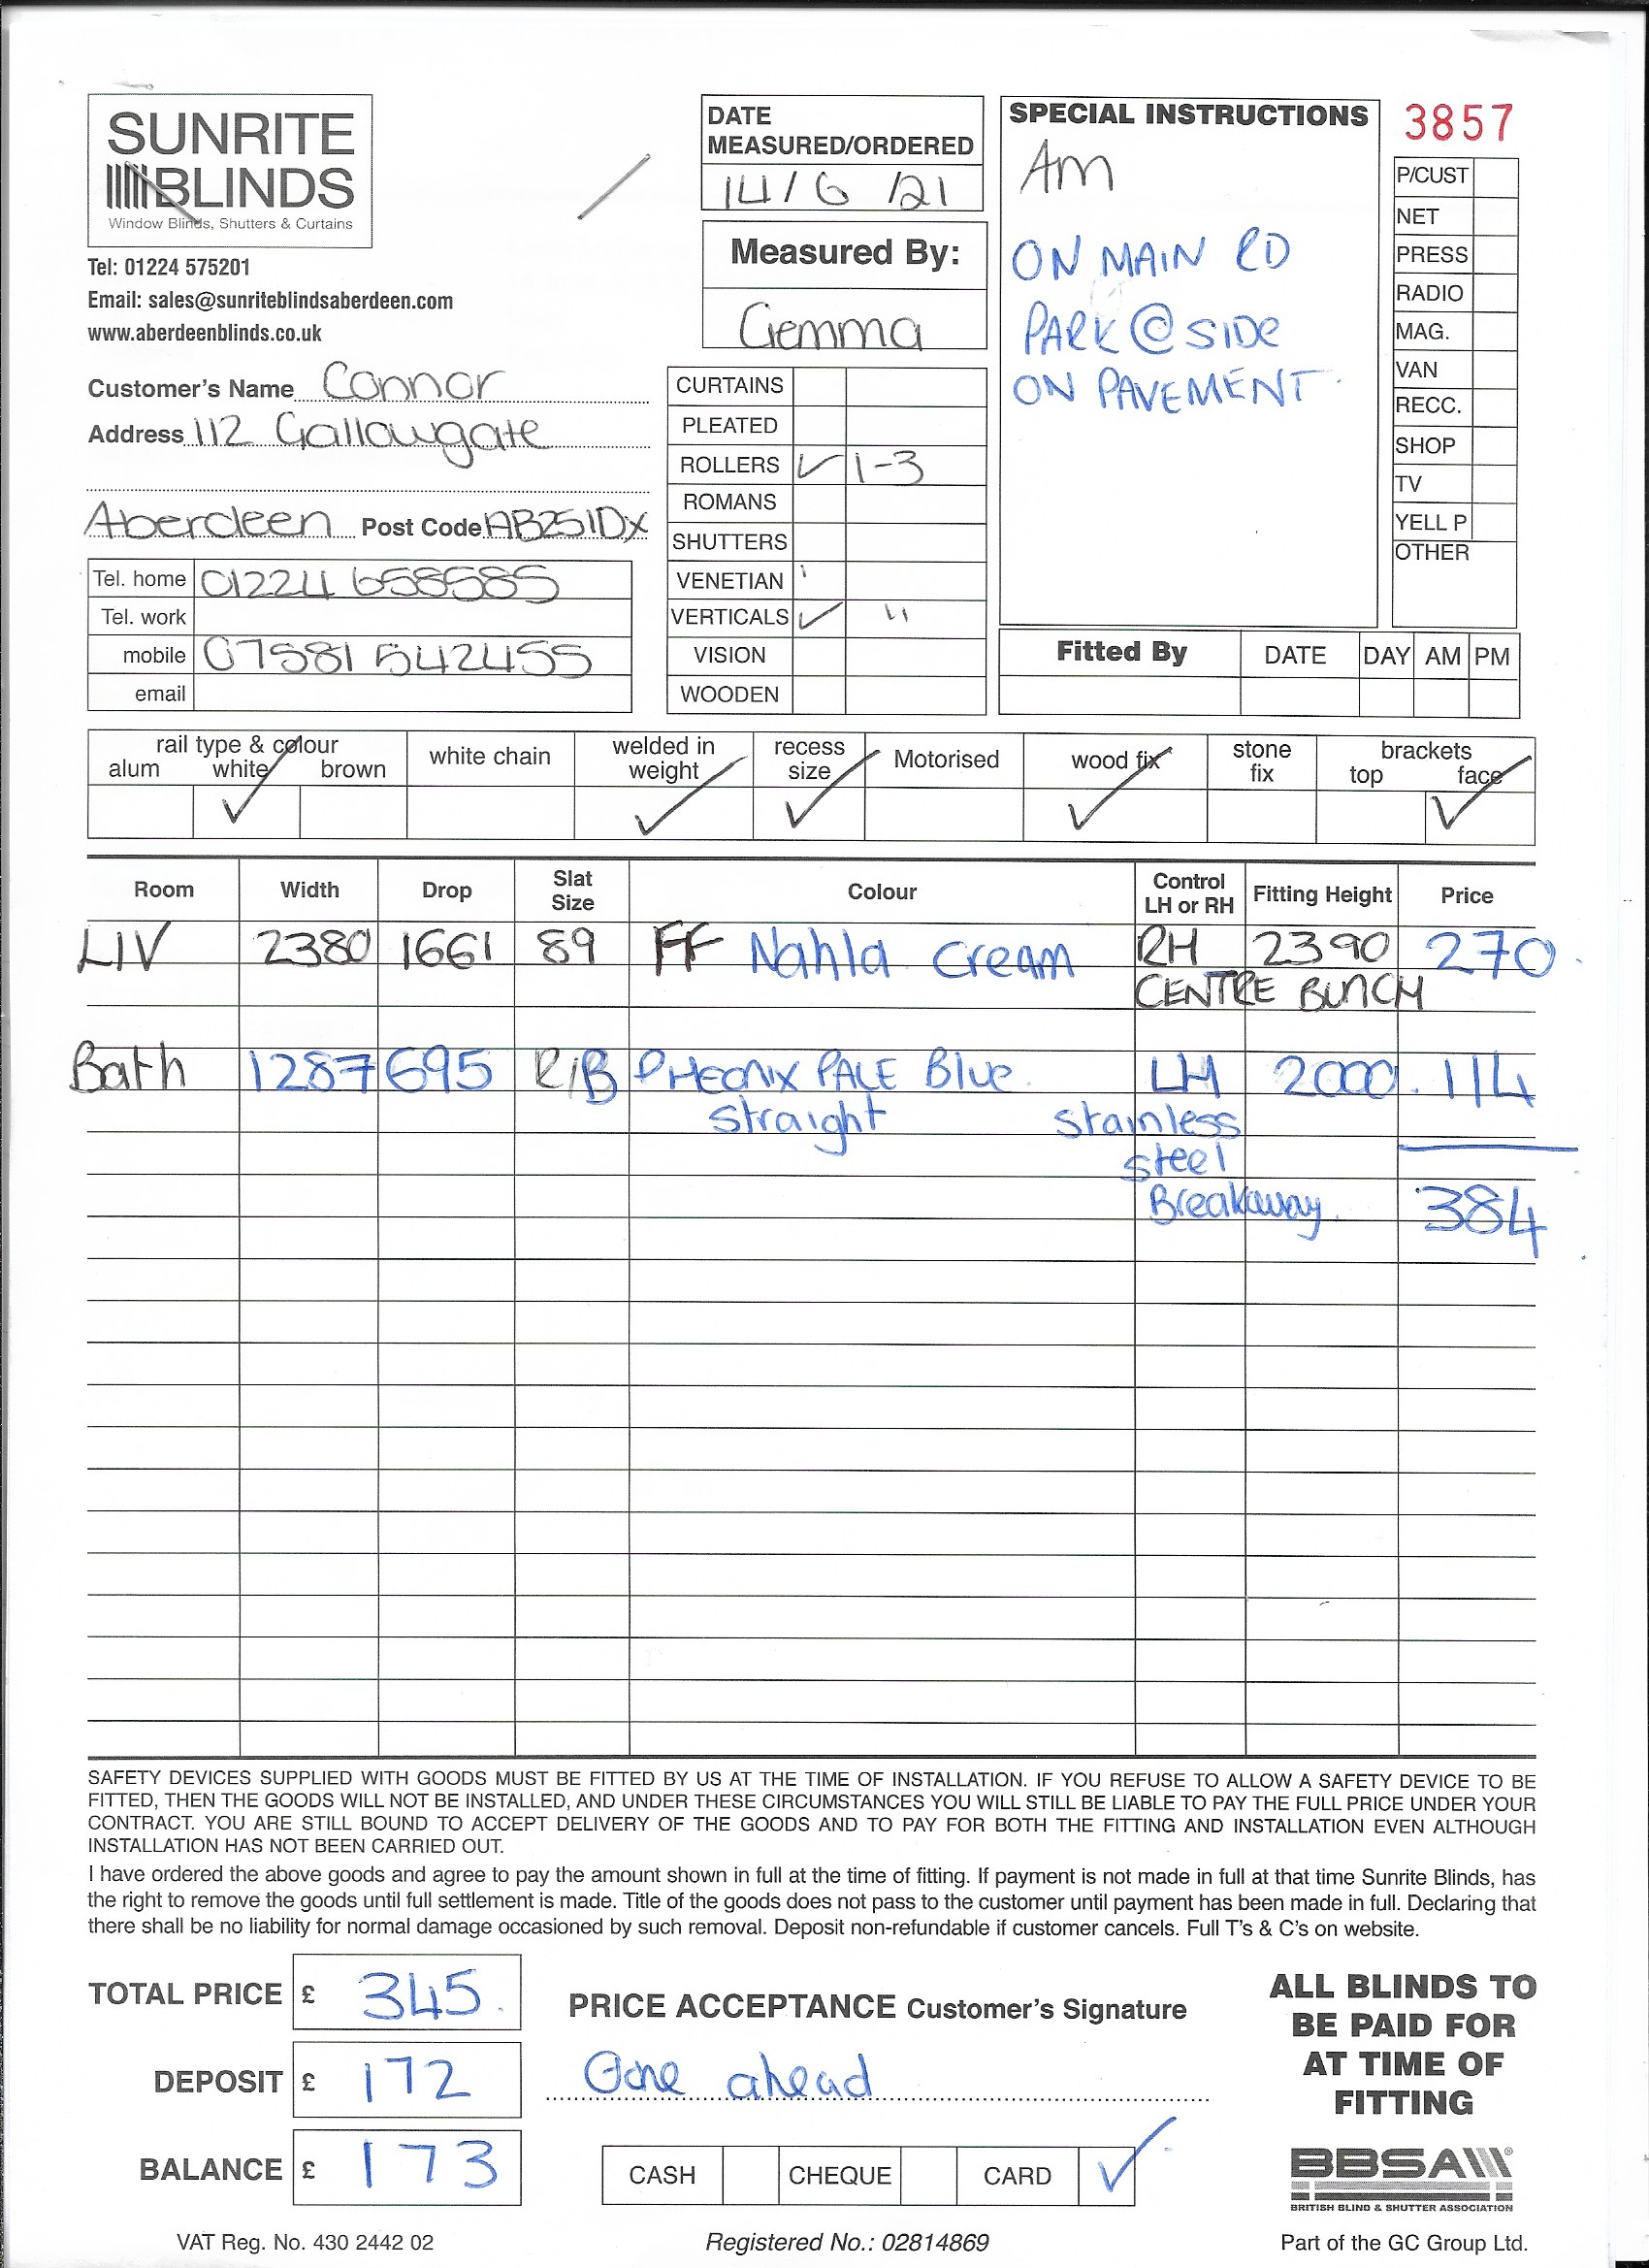 SUNRITE
BLINDS
Window Blinds, Shutters & Curtains
Tel: 01224 575201
Email: sales@sunriteblindsaberdeen.com
www.aberdeenblinds.co.uk
Customer's Name Connor
Address 112 Gallowgate
Aberdeen Post Code AB251DX
Tel. home 01224 658585
Tel. work
mobile 07581 542455
email
DATE
MEASURED/ORDERED
14/6/21
Measured By:
Gemma
CURTAINS
PLEATED
ROLLERS ✓ 1-3
ROMANS
SHUTTERS
VENETIAN
VERTICALS ✓ "
VISION
WOODEN
SPECIAL INSTRUCTIONS
Am
ON MAIN RD
PARK @ SIDE
ON PAVEMENT
3857
P/CUST
NET
PRESS
RADIO
MAG.
VAN
RECC.
SHOP
TV
YELL P
OTHER
Fitted By DATE DAY AM PM
rail type & colour
alum white brown
white chain
welded in
weight
recess
size
Motorised
wood fix
stone
fix
brackets
top face
✓ ✓ ✓ ✓ ✓
Room Width Drop Slat Size Colour Control LH or RH Fitting Height Price
LIV 2380 1661 89 FF Nahla cream RH 2390 270
CENTRE BUNCH
Bath 1287 695 R/B PHEONIX PALE Blue LH 2000 114
straight stainless
steel
Breakaway 384
SAFETY DEVICES SUPPLIED WITH GOODS MUST BE FITTED BY US AT THE TIME OF INSTALLATION. IF YOU REFUSE TO ALLOW A SAFETY DEVICE TO BE
FITTED, THEN THE GOODS WILL NOT BE INSTALLED, AND UNDER THESE CIRCUMSTANCES YOU WILL STILL BE LIABLE TO PAY THE FULL PRICE UNDER YOUR
CONTRACT. YOU ARE STILL BOUND TO ACCEPT DELIVERY OF THE GOODS AND TO PAY FOR BOTH THE FITTING AND INSTALLATION EVEN ALTHOUGH
INSTALLATION HAS NOT BEEN CARRIED OUT.
I have ordered the above goods and agree to pay the amount shown in full at the time of fitting. If payment is not made in full at that time Sunrite Blinds, has
the right to remove the goods until full settlement is made. Title of the goods does not pass to the customer until payment has been made in full. Declaring that
there shall be no liability for normal damage occasioned by such removal. Deposit non-refundable if customer cancels. Full T's & C's on website.
TOTAL PRICE £ 345
DEPOSIT £ 172
BALANCE £ 173
PRICE ACCEPTANCE Customer's Signature
Gone ahead
CASH CHEQUE CARD ✓
ALL BLINDS TO
BE PAID FOR
AT TIME OF
FITTING
BBSA®
BRITISH BLIND & SHUTTER ASSOCIATION
VAT Reg. No. 430 2442 02
Registered No.: 02814869
Part of the GC Group Ltd.